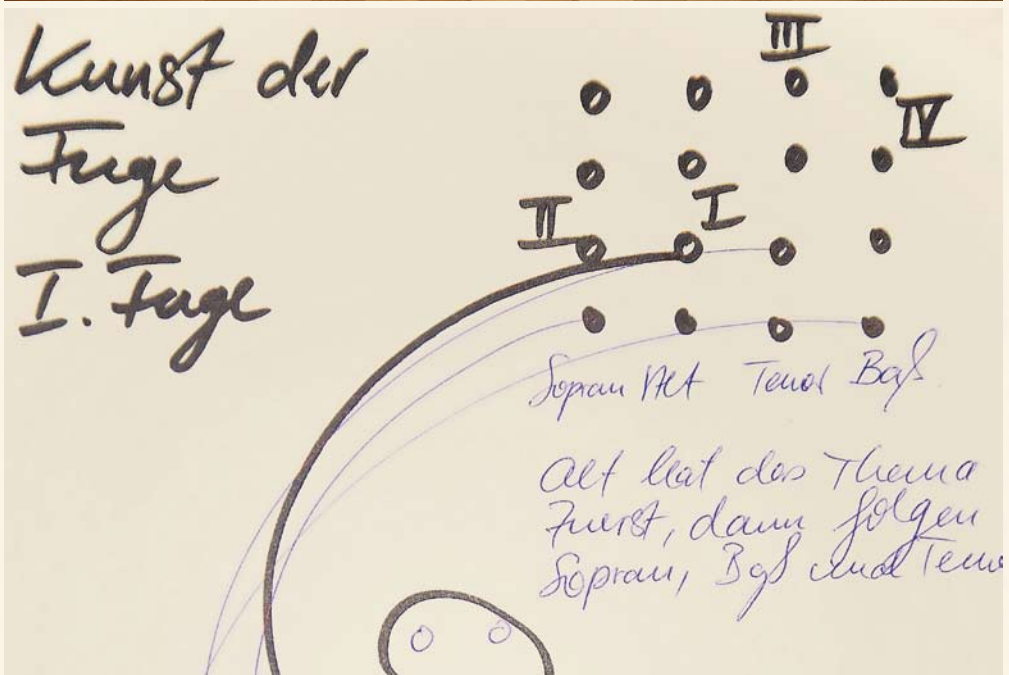 Kunst der
Fuge
I. Fuge
III
IV
II
I
Sopran Alt Tenor Baß
Alt hat das Thema
zuerst, dann folgen
Sopran, Baß und Teno